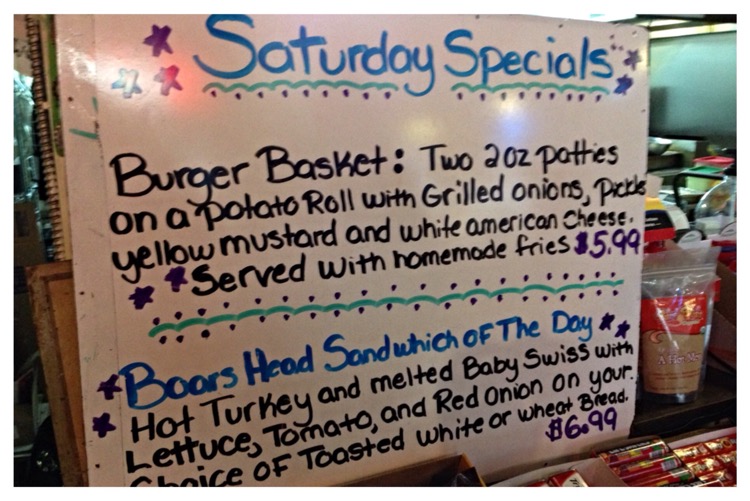 Saturday Specials
Burger Basket: Two 2oz patties
on a potato Roll with Grilled onions, pickls
yellow mustard and white american Cheese.
Served with homemade fries $5.99
Boars Head Sandwhich of The Day
Hot Turkey and melted Baby Swiss with
Lettuce, Tomato, and Red Onion on your
Choice of Toasted white or wheat Bread.
$6.99